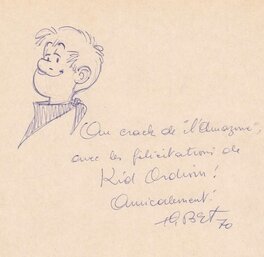 Au crack de "l'Amazone",
avec les félicitations de
Kid Ordinn!
Amicalement!
Hubert 70